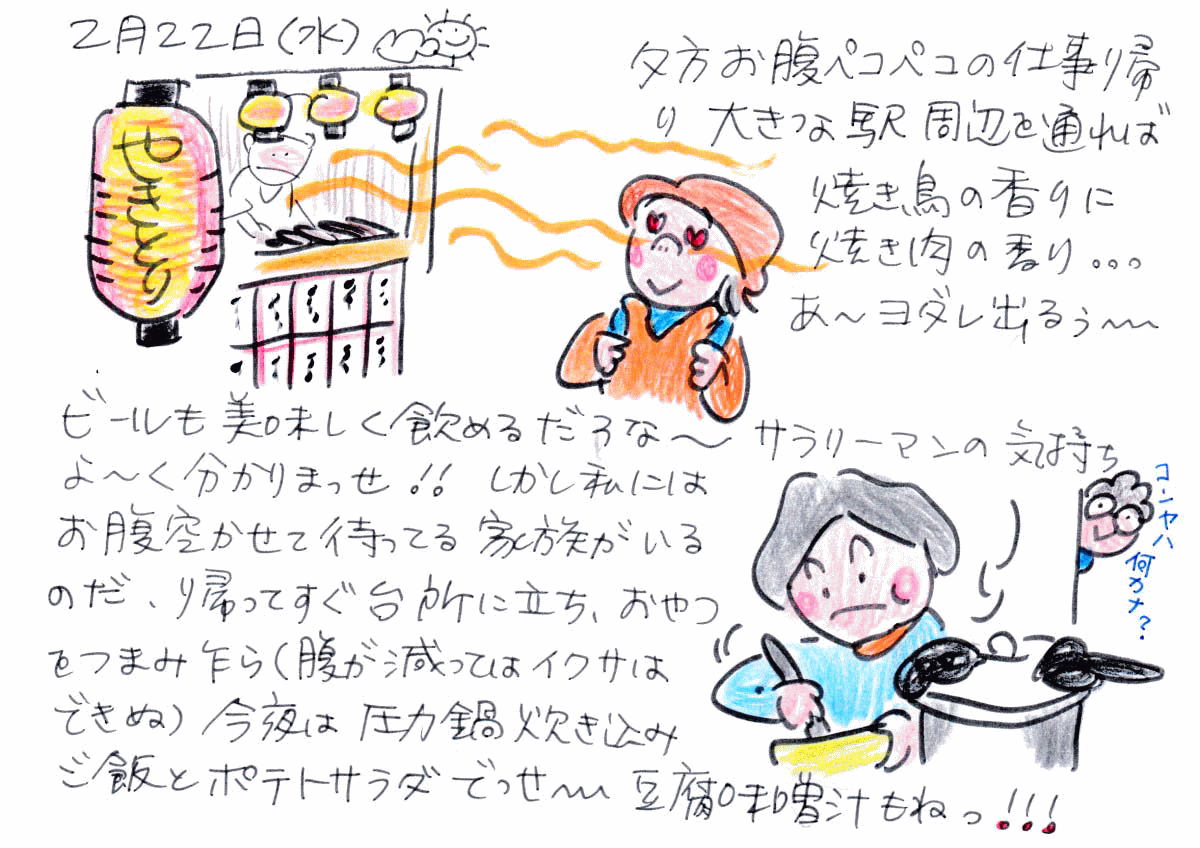 2月22日(水)
やきとり
夕方お腹ペコペコの仕事り帰
り 大きな駅周辺を通れば
焼き鳥の香りに
焼き肉の香り...
あ〜ヨダレ出るぅ〜
ビールも美味しく飲めるだろな〜 サラリーマンの気持ち
よ〜く分かりまっせ!! しかし私には
お腹空かせて待ってる家族がいる
のだ、り帰ってすぐ台所に立ち、おやつ
をつまみ乍ら(腹が減ってはイクサは
できぬ)今夜は圧力鍋炊き込み
ご飯とポテトサラダでっせ〜 豆腐味噌汁もねっ!!!
コンヤハ
何カナ?